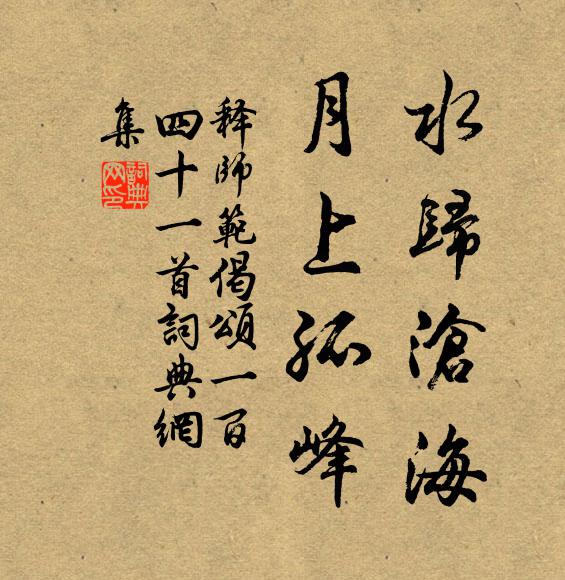 水歸滄海
月上孤峰
釋師範偈頌一百
四十一首詞典網
集
詞典
网印